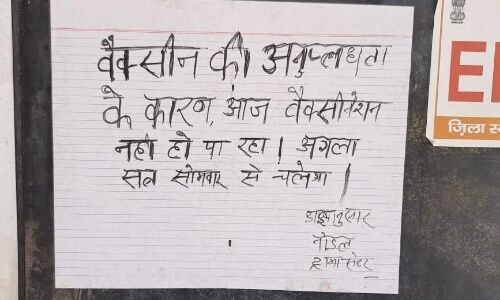 वैक्सीन की अनुप्लधता
के कारण, आज वैक्सीनेशन
नहीं हो पा रहा। अगला
सत्र सोमवार से चलेगा।
नोडल
E
जिला स्